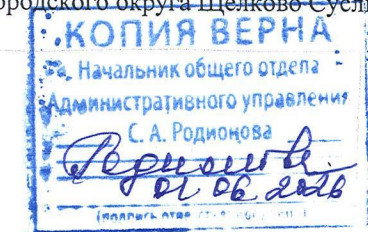 ородского округа Щёлково Сусл
КОПИЯ ВЕРНА
Начальник общего отдела
Административного управления
С. А. Родионова
Родионова
01 06 2026